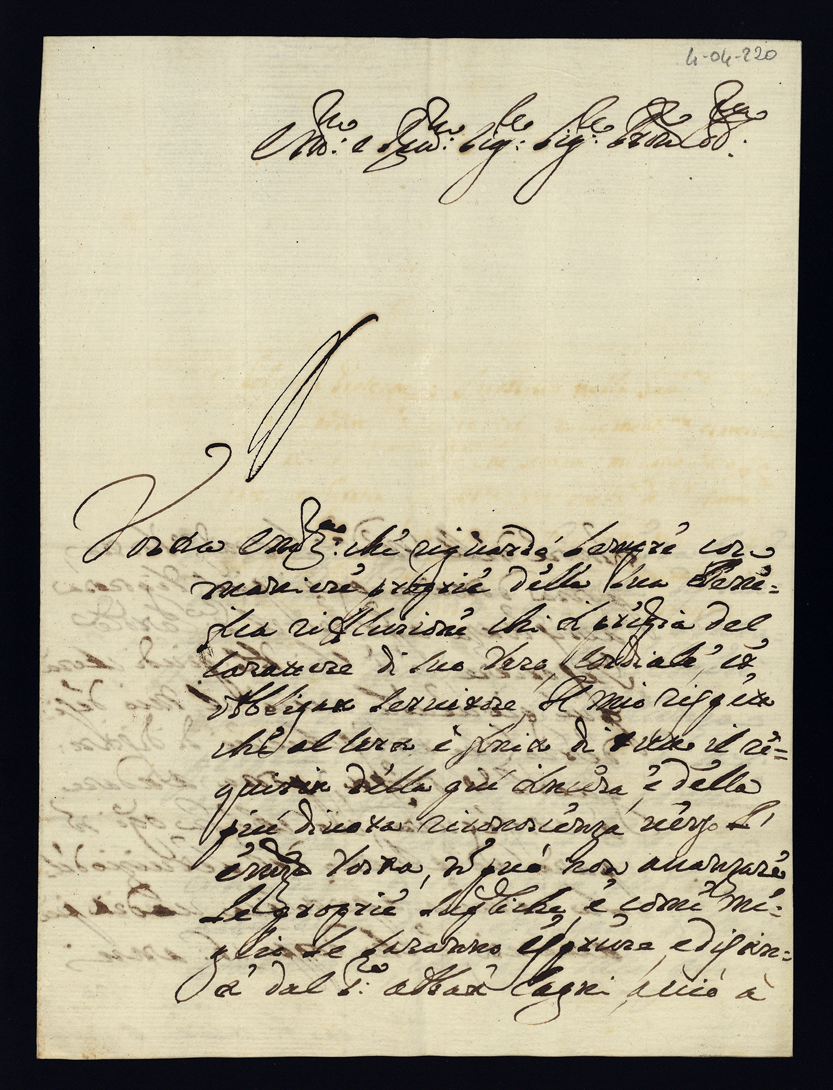 4-04-220
Em.mo e Rev.mo Sig.re Sig.re Pron Col.mo
Vostra Em.za che riguarda sempre con
maniere proprie della sua Bene=
fica riflessione chi si pregia del
carattere di suo vero, cordiale, et
obbligato servitore, il mio rispetto
che al certo è pieno di tutti il re=
quisiti della più sincera, e della
più divota riconoscenza verso l'
Em.za Vostra, non può non avanzare
le proprie suppliche, e come me=
glio le saranno esposte, e distin=
te dal S.re Abbate Lagni, acciò à